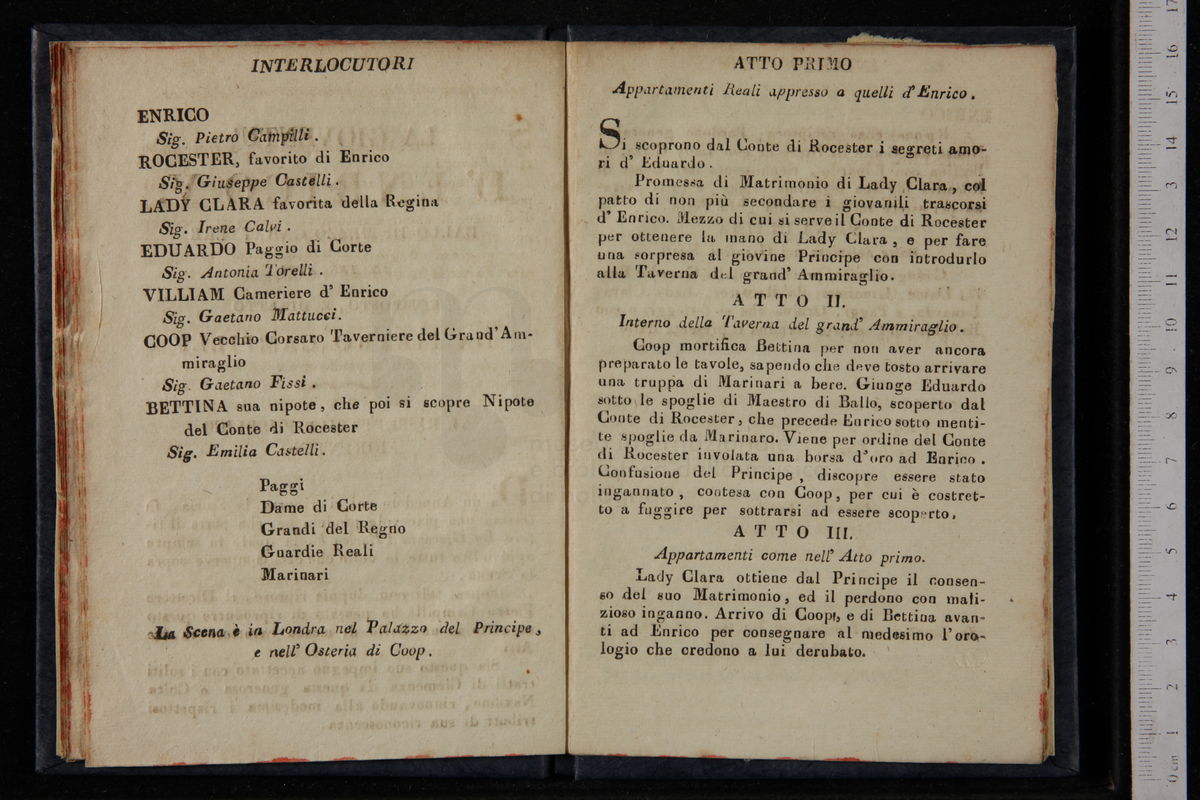 INTERLOCUTORI
ENRICO
Sig. Pietro Campilli .
ROCESTER, favorito di Enrico
Sig. Giuseppe Castelli .
LADY CLARA favorita della Regina
Sig. Irene Calvi .
EDUARDO Paggio di Corte
Sig. Antonia Torelli .
VILLIAM Cameriere d' Enrico
Sig. Gaetano Mattucci.
COOP Vecchio Corsaro Taverniere del Grand' Am-
miraglio
Sig. Gaetano Fissi .
BETTINA sua nipote, che poi si scopre Nipote
del Conte di Rocester
Sig. Emilia Castelli.
Paggi
Dame di Corte
Grandi del Regno
Guardie Reali
Marinari
La Scena è in Londra nel Palazzo del Principe,
e nell' Osteria di Coop.
ATTO PRIMO
Appartamenti Reali appresso a quelli d'Enrico.
Si scoprono dal Conte di Rocester i segreti amo-
ri d' Eduardo.
Promessa di Matrimonio di Lady Clara, col
patto di non più secondare i giovanili trascorsi
d' Enrico. Mezzo di cui si serve il Conte di Rocester
per ottenere la mano di Lady Clara, e per fare
una sorpresa al giovine Principe con introdurlo
alla Taverna del grand' Ammiraglio.
ATTO II.
Interno della Taverna del grand' Ammiraglio.
Coop mortifica Bettina per non aver ancora
preparato le tavole, sapendo che deve tosto arrivare
una truppa di Marinari a bere. Giunge Eduardo
sotto le spoglie di Maestro di Ballo, scoperto dal
Conte di Rocester, che precede Enrico sotto menti-
te spoglie da Marinaro. Viene per ordine del Conte
di Rocester involata una borsa d'oro ad Enrico.
Confusione del Principe, discopre essere stato
ingannato, contesa con Coop, per cui è costret-
to a fuggire per sottrarsi ad essere scoperto,
ATTO III.
Appartamenti come nell' Atto primo.
Lady Clara ottiene dal Principe il consen-
so del suo Matrimonio, ed il perdono con mali-
zioso inganno. Arrivo di Coop, e di Bettina avan-
ti ad Enrico per consegnare al medesimo l'oro-
logio che credono a lui derubato.
0 cm 1 2 3 4 5 6 7 8 9 10 11 12 13 14 15 16 17